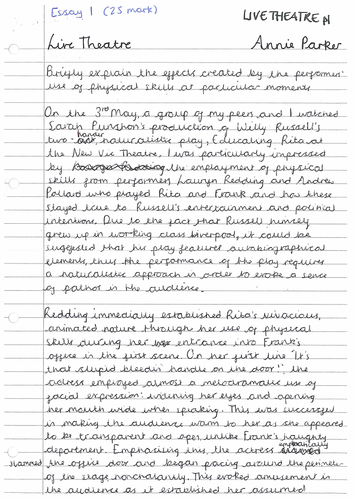 Essay 1 (25 mark)
LIVE THEATRE p1
Live Theatre Annie Parker
Briefly explain the effects created by the performers'
use of physical skills at particular moments
On the 3rd May, a group of my peers and I watched
Sarah Punshon's production of Willy Russell's
two-hander naturalistic play, Educating Rita, at
the New Vic Theatre. I was particularly impressed
by the employment of physical
skills from performers Lauryn Redding and Andrew
Pollard who played Rita and Frank and how these
stayed true to Russell's entertainment and political
intentions. Due to the fact that Russell himself
grew up in working class Liverpool, it could be
suggested that his play features autobiographical
elements, thus the performance of the play requires
a naturalistic approach in order to evoke a sense
of pathos in the audience.
Redding immedially established Rita's vivacious,
animated nature through her use of physical
skills during her entrance into Frank's
office in the first scene. On her first line "It's
that stupid bleedin' handle on the door!", the
actress employed almost a melodramatic use of
facial expression: widening her eyes and opening
her mouth wide when speaking. This was successful
in making the audience warm to her as she appeared
to be transparent and open, unlike Frank's haughty
department. Emphasising this, the actress emphatically
slammed the office door and began pacing around the perimeter
of the stage nonchalantly. This evoked amusement in
the audience as it established her assumed